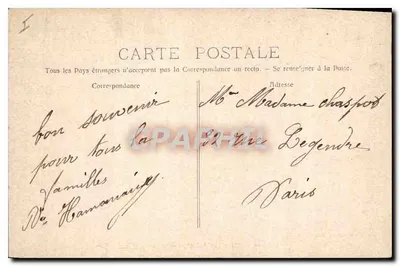 I
CARTE POSTALE
Tous les Pays étrangers n'acceptent pas la Correspondance au recto. – Se renseigner à la Poste.
Correspondance
Adresse
bon souvenir
pour tous la
familles
Mme Madame
32 rue Legendre
Paris
CARAPHIL